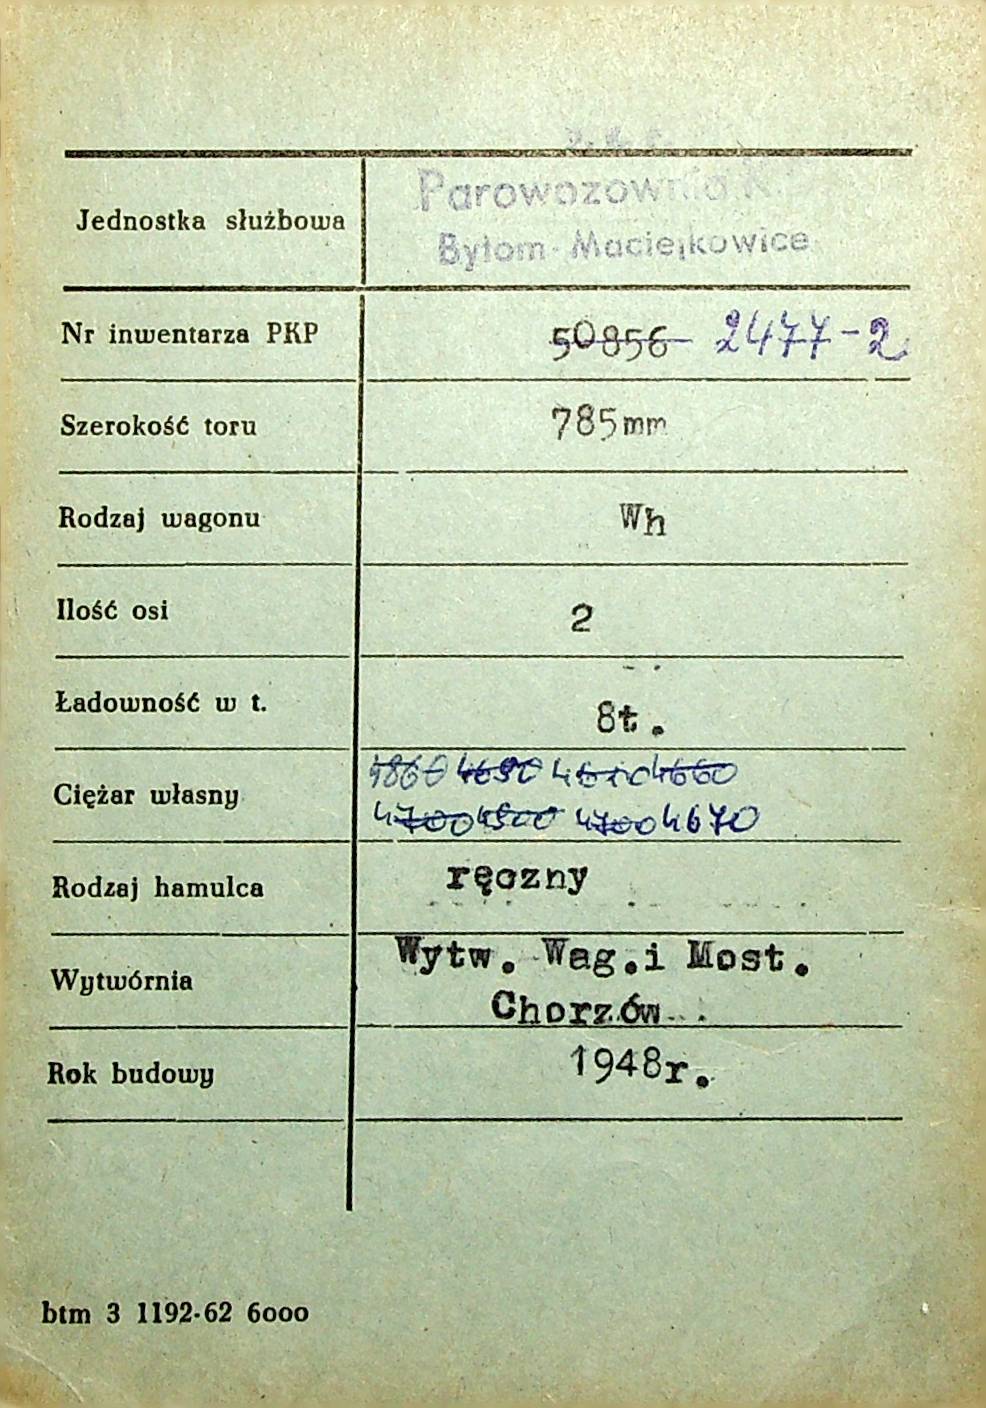 Parowozownia K.
Jednostka służbowa
Bytom-Maciejkowice
Nr inwentarza PKP 50856 2477-2
Szerokość toru 785mm
Rodzaj wagonu Wh
Ilość osi 2
Ładowność w t. 8t.
4860 4690 4660
Ciężar własny
4700 4500 4700 4670
Rodzaj hamulca ręczny
Wytw. Wag.i Most.
Wytwórnia
Chorzów
Rok budowy 1948r.
btm 3 1192-62 6000